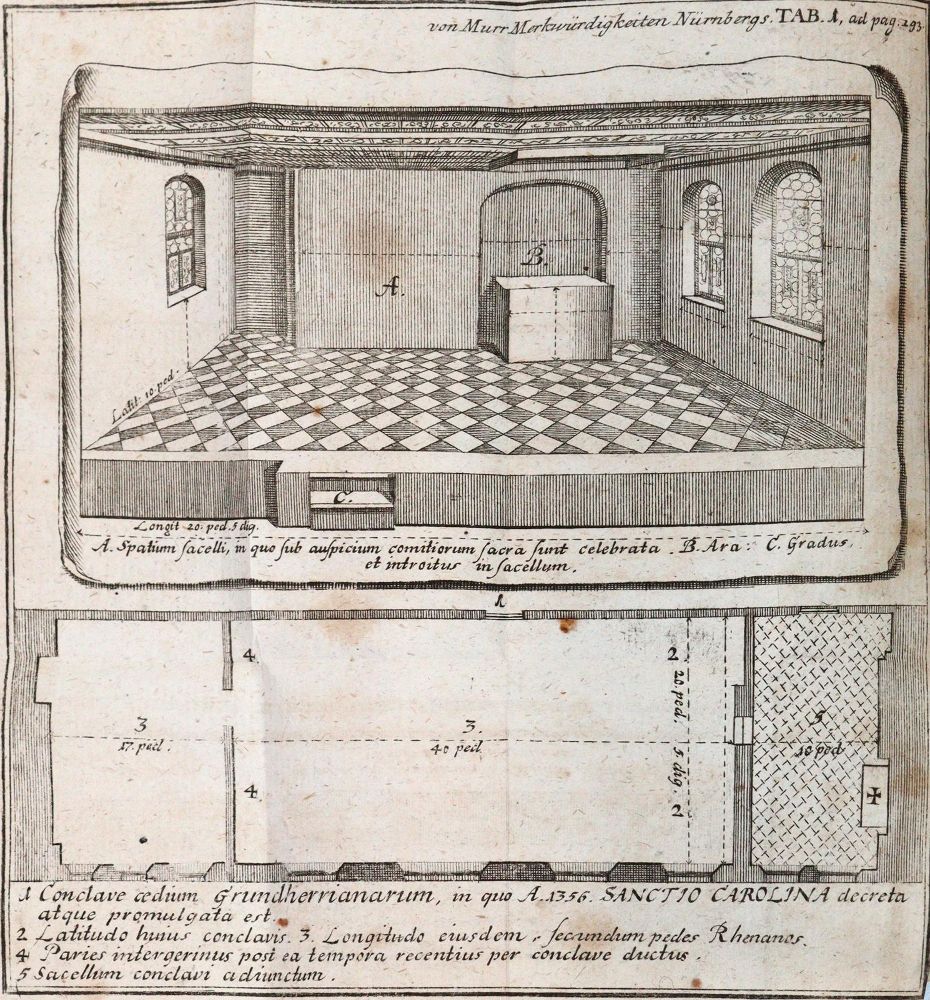 von Murr Merkwürdigkeiten Nürnbergs. TAB. 1, ad pag. 293
A.
B.
Latit. 10. ped.
C.
Longit 20. ped. 5 dig.
A. Spatium sacelli, in quo sub auspicium comitiorum sacra sunt celebrata. B. Ara. C. Gradus,
et introitus in sacellum.
1
4
2
3
17. ped.
3.
40 ped.
20 ped. 5 dig.
5
10 ped
4
2
1 Conclave ædium Grundherrianarum, in quo A. 1356. SANCTIO CAROLINA decreta
atque promulgata est.
2 Latitudo huius conclavis. 3. Longitudo eiusdem, secundum pedes Rhenanos.
4 Paries intergerinus post ea tempora recentius per conclave ductus.
5 Sacellum conclavi adiunctum.